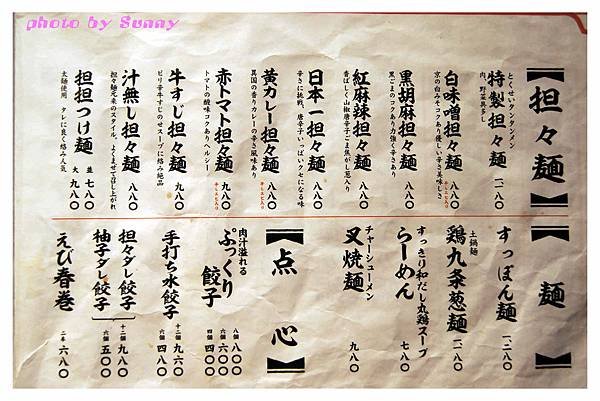 photo by Sunny
【担々麺】
とくせいタンタンメン
特製担々麺 一、一八〇
肉、野菜具多し
白味噌担々麺 八八〇
京の白みそコクあり優しい辛さ美味しさ
黒胡麻担々麺 八八〇
黒ごまのコクあり力強く辛さあり
紅麻辣担々麺 八八〇
香ばしく山椒唐辛子ごま焦がし葱入り
日本一担々麺 八八〇
辛さに挑戦、唐辛子いっぱいクセになる味
黄カレー担々麺 八八〇
異国の香りカレーの辛さ風味あり
赤トマト担々麺 九八〇
トマトの酸味コクありヘルシー
牛すじ担々麺 九八〇
ピリ辛牛すじのせスープに絡み絶品
汁無し担々麺 八八〇
担々麺元来のスタイル、よくまぜてほし上がれ
担担つけ麺 並 七八〇
大 九八〇
太麺使用 タレに良く絡み人気
【麺】
すっぽん麺 一、二八〇
土鍋麺
鶏九条葱麺 一、一八〇
すっきり和だし丸鶏スープ
らーめん 七八〇
チャーシューメン
叉焼麺 九八〇
【点心】
肉汁溢れる
ぷっくり餃子 八個 八〇〇
六個 六〇〇
四個 四〇〇
手打ち水餃子 十二個 九六〇
六個 四八〇
担々ダレ餃子 十二個 九八〇
柚子ダレ餃子 六個 五〇〇
えび春巻 二本 六八〇